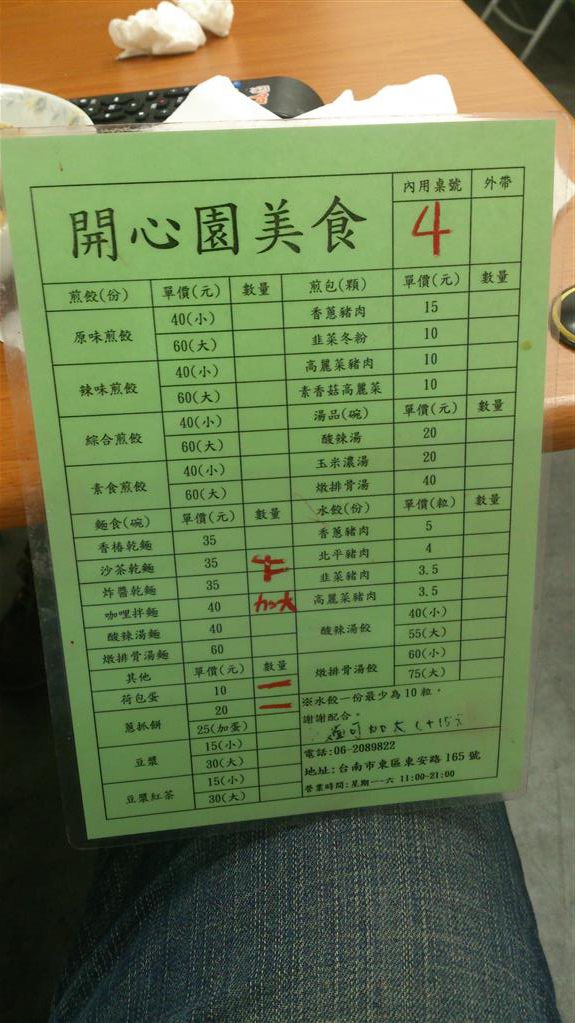 開心園美食 內用桌號 外帶
4
煎餃(份) 單價(元) 數量 煎包(顆) 單價(元) 數量
原味煎餃 40(小) 香蔥豬肉 15
60(大) 韭菜冬粉 10
辣味煎餃 40(小) 高麗菜豬肉 10
60(大) 素香菇高麗菜 10
綜合煎餃 40(小) 湯品(碗) 單價(元) 數量
60(大) 酸辣湯 20
素食煎餃 40(小) 玉米濃湯 20
60(大) 燉排骨湯 40
麵食(碗) 單價(元) 數量 水餃(份) 單價(粒) 數量
香椿乾麵 35 香蔥豬肉 5
沙茶乾麵 35 北平豬肉 4
炸醬乾麵 35 韭菜豬肉 3.5
咖哩拌麵 40 加大 高麗菜豬肉 3.5
酸辣湯麵 40 酸辣湯餃 40(小)
燉排骨湯麵 60 55(大)
其他 單價(元) 數量 燉排骨湯餃 60(小)
荷包蛋 10 一 75(大)
蔥抓餅 20 一
25(加蛋)
豆漿 15(小)
30(大)
豆漿紅茶 15(小)
30(大)
※水餃一份最少為10粒,
謝謝配合。
可加大(+15元
電話:06-2089822
地址:台南市東區東安路165號
營業時間:星期一~六 11:00-21:00